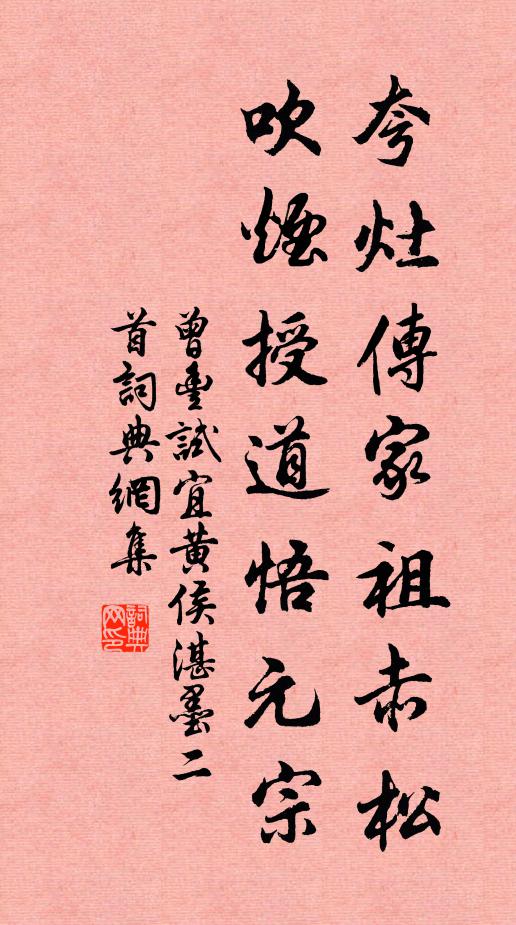 夸灶傳家祖赤松
吹煙授道悟元宗
曾豊試宜黃侯湛墨二
首詞典網集
詞典網印